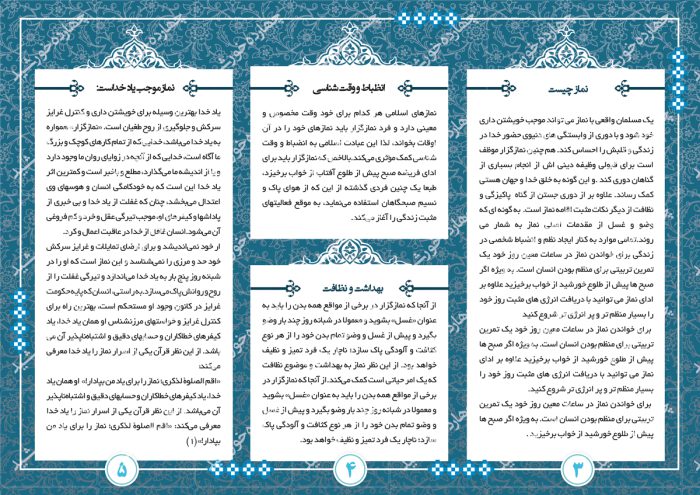 نماز چیست
یک مسلمان واقعی با نماز می تواند موجب خویشتن داری
خود شود و با دوری از وابستگی های دنیوی حضور خدا در
زندگی و قلبش را احساس کند. هم چنین نمازگزار موظف
است برای قبولی وظیفه دینی اش از انجام بسیاری از
گناهان دوری کند .و این گونه به خلق خدا و جهان هستی
کمک رساند. علاوه بر از دوری جستن از گناه پاکیزگی و
نظافت از دیگر نکات مثبت اقامه نماز است. به گونه ای که
وضو و غسل از مقدمات اصلی نماز به شمار می
روند.تمامی موارد به کنار ایجاد نظم و انضباط شخصی در
زندگی برای خواندن نماز در ساعات معین روز خود یک
تمرین تربیتی برای منظم بودن انسان است. به ویژه اگر
صبح ها پیش از طلوع خورشید از خواب برخیزید علاوه بر
ادای نماز می توانید با دریافت انرژی های مثبت روز خود
را بسیار منظم تر و پر انرژی تر شروع کنید
برای خواندن نماز در ساعات معین روز خود یک تمرین
تربیتی برای منظم بودن انسان است. به ویژه اگر صبح ها
پیش از طلوع خورشید از خواب برخیزید علاوه بر ادای
نماز می توانید با دریافت انرژی های مثبت روز خود را
بسیار منظم تر و پر انرژی تر شروع کنید.
برای خواندن نماز در ساعات معین روز خود یک تمرین
تربیتی برای منظم بودن انسان است. به ویژه اگر صبح ها
پیش از طلوع خورشید از خواب برخیزید. .
۳
انظباط و وقت شناسی
نمازهای اسلامی هر کدام برای خود وقت مخصوص و
معینی دارد و فرد نمازگزار باید نمازهای خود را در آن
اوقات بخواند، لذا این عبادت اسلامی به انضباط و وقت
شناسی کمک مؤثری می‌کند.بالاخص که نمازگزار باید برای
ادای فریضه صبح پیش از طلوع آفتاب از خواب برخیزد،
طبعا یک چنین فردی گذشته از این که از هوای پاک و
نسیم صبحگاهان استفاده می‌نماید، به موقع فعالیتهای
مثبت زندگی را آغاز می‌کند.
بهداشت و نظافت
از آنجا که نمازگزار در برخی از مواقع همه بدن را باید به
عنوان «غسل» بشوید و معمولا در شبانه روز چند بار وضو
بگیرد و پیش از غسل و وضو تمام بدن خود را از هر نوع
کثافت و آلودگی پاک سازد؛ ناچار یک فرد تمیز و نظیف
خواهد بود. از این نظر نماز به بهداشت و موضوع نظافت
که یک امر حیاتی است کمک می‌کند.از آنجا که نمازگزار در
برخی از مواقع همه بدن را باید به عنوان «غسل» بشوید
و معمولا در شبانه روز چند بار وضو بگیرد و پیش از غسل
و وضو تمام بدن خود را از هر نوع کثافت و آلودگی پاک
سازد؛ ناچار یک فرد تمیز و نظیف خواهد بود.
۴
نماز موجب یاد خداست:
یاد خدا بهترین وسیله برای خویشتن داری و کنترل غرایز
سرکش و جلوگیری از روح طغیان است. «نمازگزار» همواره
به یاد خدا می‌باشد، خدایی که از تمام کارهای کوچک و بزرگ
ما آگاه است، خدایی که از آنچه در زوایای روان ما وجود دارد
و یا از اندیشه ما می‌گذرد، مطلع و باخبر است و کمترین اثر
یاد خدا این است که به خودکامگی انسان و هوسهای وی
اعتدال می‌بخشد، چنان که غفلت از یاد خدا و بی خبری از
پاداشها و کیفرهای او، موجب تیرگی عقل و خرد و کم فروغی
آن می‌شود.انسان غافل از خدا در عاقبت اعمال و کردار
خود نمی‌اندیشد و برای ارضای تمایلات و غرایز سرکش
خود حد و مرزی را نمی‌شناسد و این نماز است که او را در
شبانه روز پنج بار به یاد خدا می‌اندازد و تیرگی غفلت را از
روح و روانش پاک می‌سازد.به راستی، انسان که پایه حکومت
غرایز در کانون وجود او مستحکم است، بهترین راه برای
کنترل غرایز و خواستهای مرزنشناس او همان یاد خدا، یاد
کیفرهای خطاکاران و حسابهای دقیق و اشتباه‌ناپذیر آن می
باشد. از این نظر قرآن یکی از اسرار نماز را یاد خدا معرفی
می‌کند:
«اقم الصلوة لذکری؛ نماز را برای یاد من بپادار!» او همان یاد
خدا، یاد کیفرهای خطاکاران و حسابهای دقیق و اشتباه‌ناپذیر
آن می‌باشد. از این نظر قرآن یکی از اسرار نماز را یاد خدا
معرفی می‌کند: «اقم الصلوة لذکری؛ نماز را برای یاد من
بپادار!»(۱)
۵